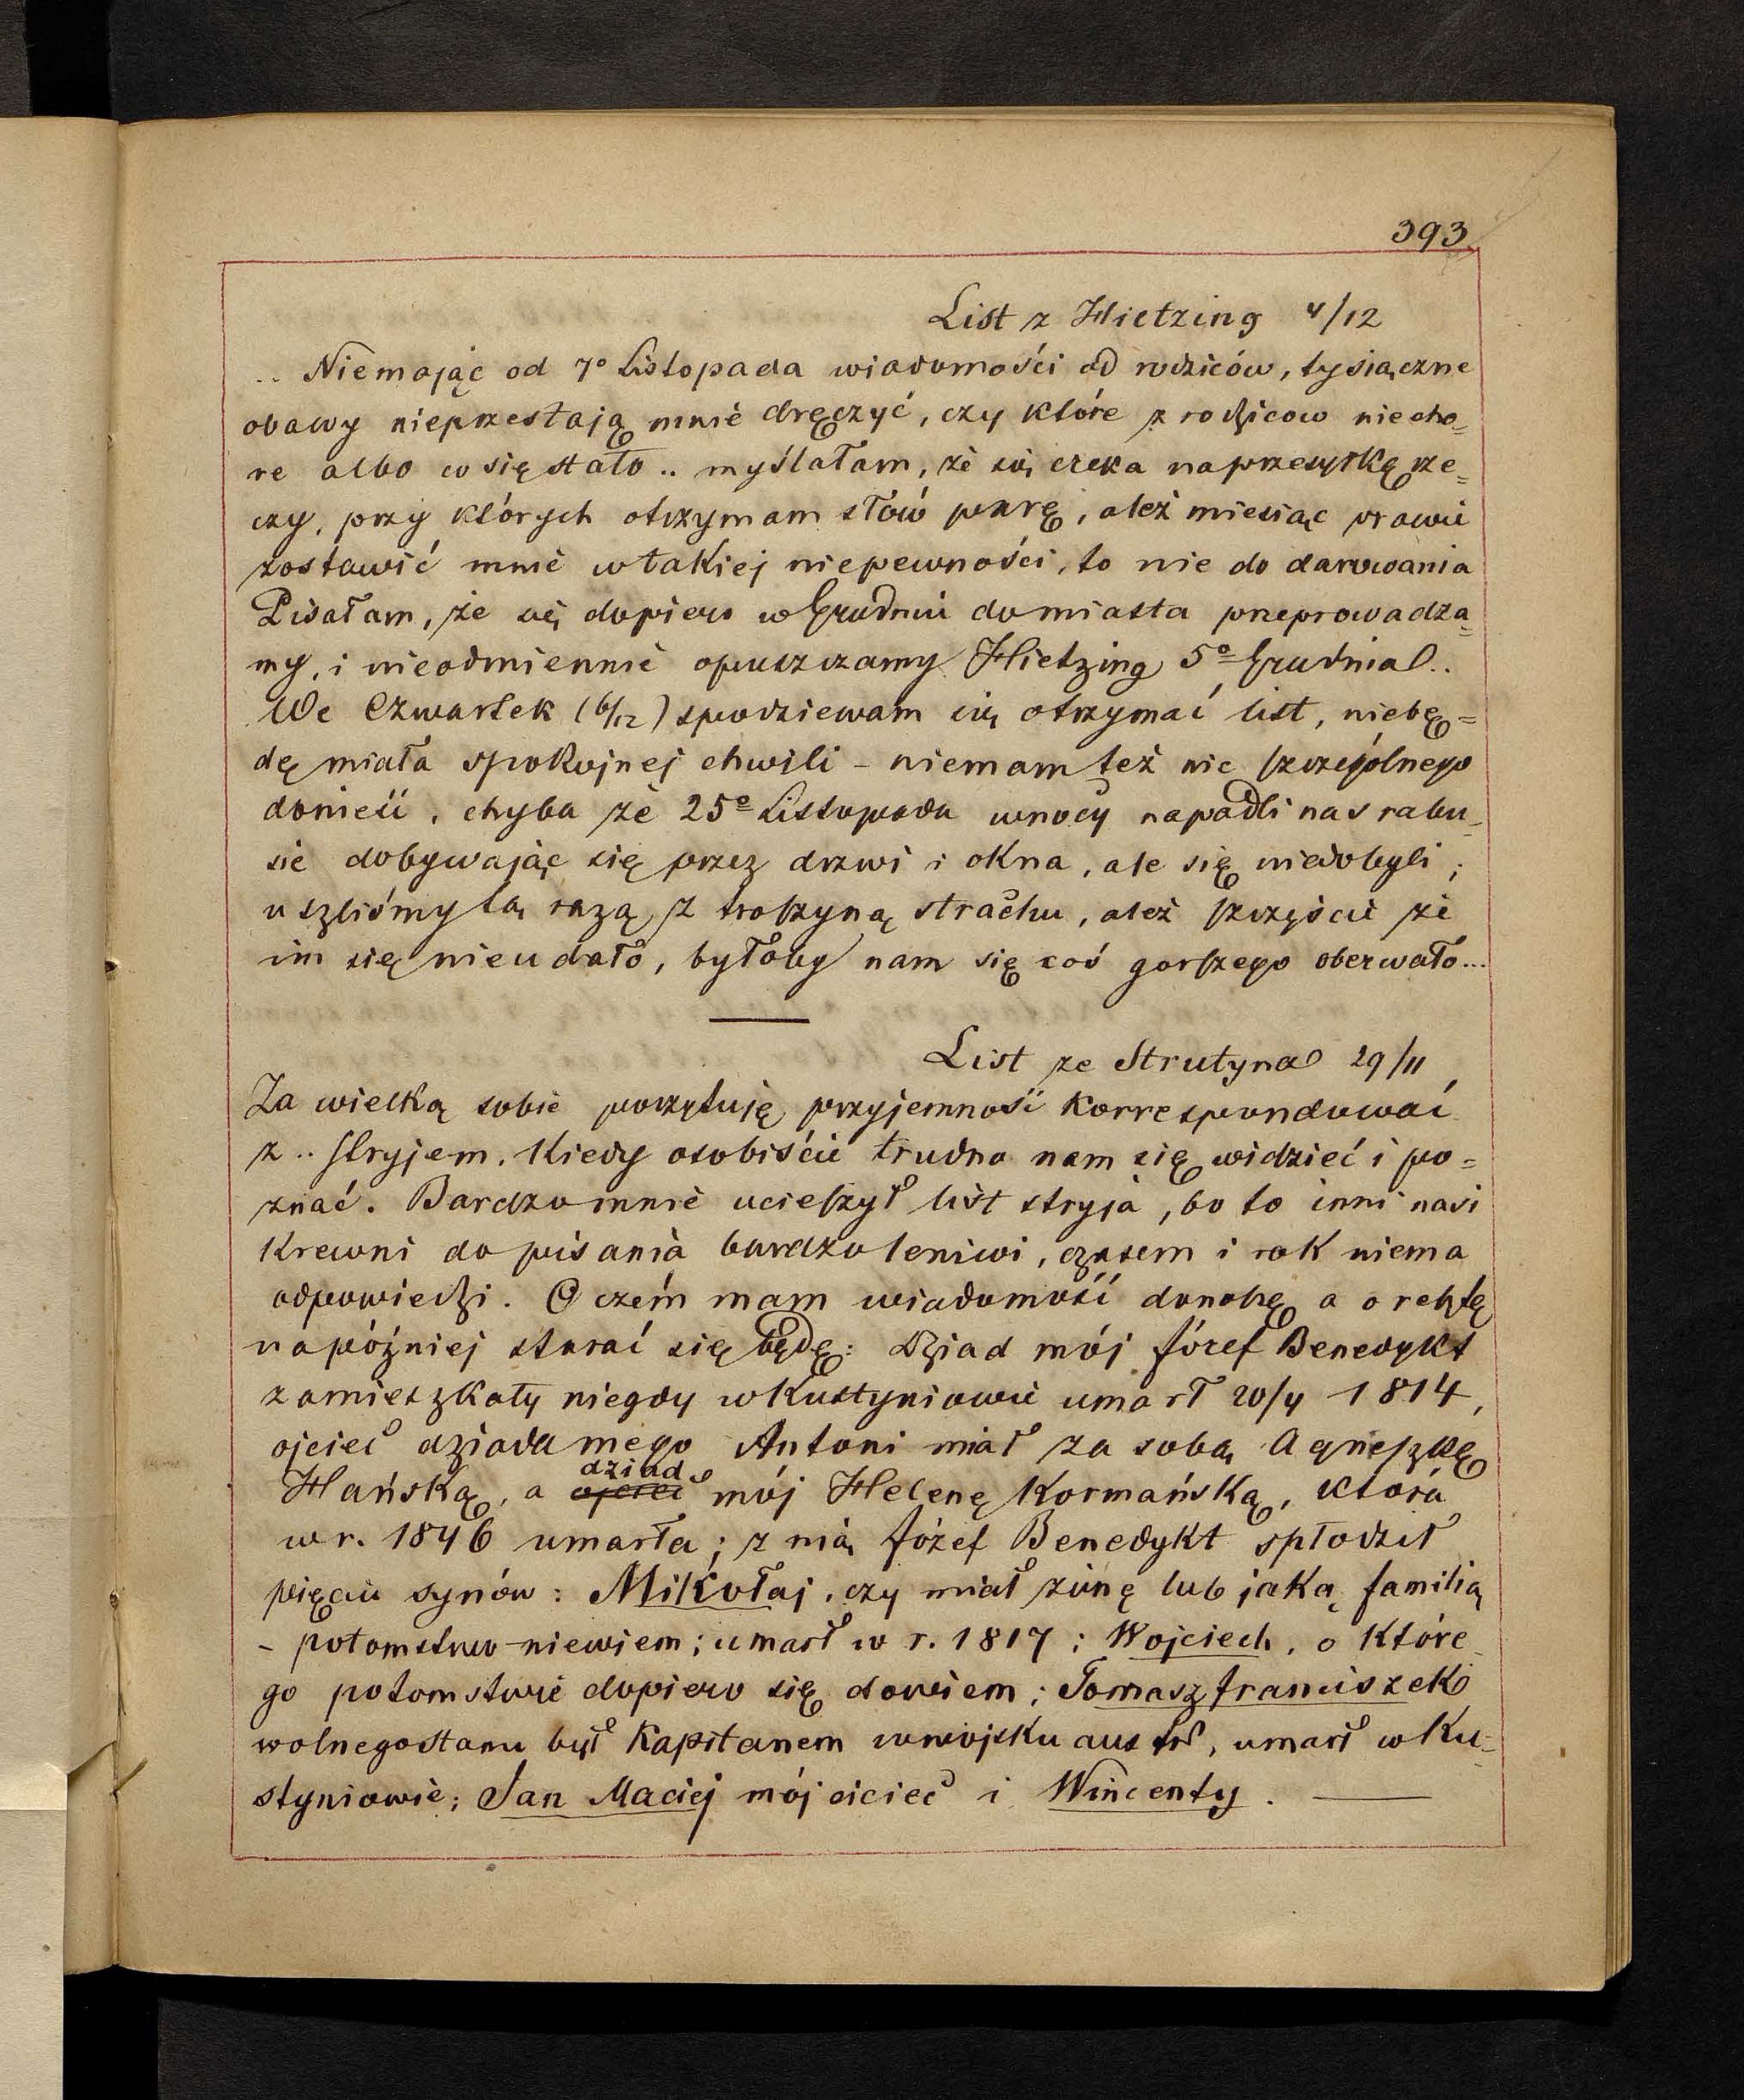 393
List z Hietzing 4/12
.. Niemając od 7º Listopada wiadomości od rodziców, tysiączne
obawy nieprzestają mnie dręczyć, czy które z rodzicow niecho=
re albo co się stało .. myślałam, że się czeka na przesyłkę rze=
czy, przy których otrzymam słów parę, ależ miesiąc prawie
zostawić mnie w takiej niepewności, to nie do darowania
Pisałam, że się dopiero w Grudniu do miasta przeprowadza=
my, i nieodmiennie opuszczamy Hietzing 5º Grudnia ..
We Czwartek (6/12) spodziewam się otrzymać list, niebę=
dę miała spokojnej chwili – niemam też nic szczególnego
donieść, chyba że 25º Listopada w nocy napadli nas rabu=
sie dobywając się przez drzwi i okna, ale się niedobyli;
uszliśmy tą razą z troszyną strachu, ależ szczęście że
im się nieudało, byłoby nam się coś gorszego oberwało...
List ze Strutyna 29/11
Za wielką sobie poczytuję przyjemność korrespondować
z .. Stryjem, kiedy osobiście trudno nam się widzieć i po=
znać. Bardzo mnie ucieszył list stryja, bo to inni nasi
krewni do pisania bardzo leniwi, czasem i rok niema
odpowiedzi. O czém mam wiadomość donoszę a o resztę
napóźniej starać się będę: Dziad mój Józef Benedykt
zamieszkały niegdy w Kustyniowie umarł 20/4 1814,
ojciec dziada mego Antoni miał za sobą Agnieszkę
Hańską, a ojciec dziad mój Helenę Kormańską, która
w r. 1846 umarła; z nią Józef Benedykt spłodził
pięciu synów: Mikołaj, czy miał żonę lub jaką familią
– potomstwo – niewiem; umarł w r. 1817; Wojciech, o które
go potomstwie dopiero się dowiem; Tomasz Franciszek
wolnego stanu był kapitanem w wojsku austr, umarł w Ku=
styniowie; Jan Maciej mój ojciec i Wincenty. —